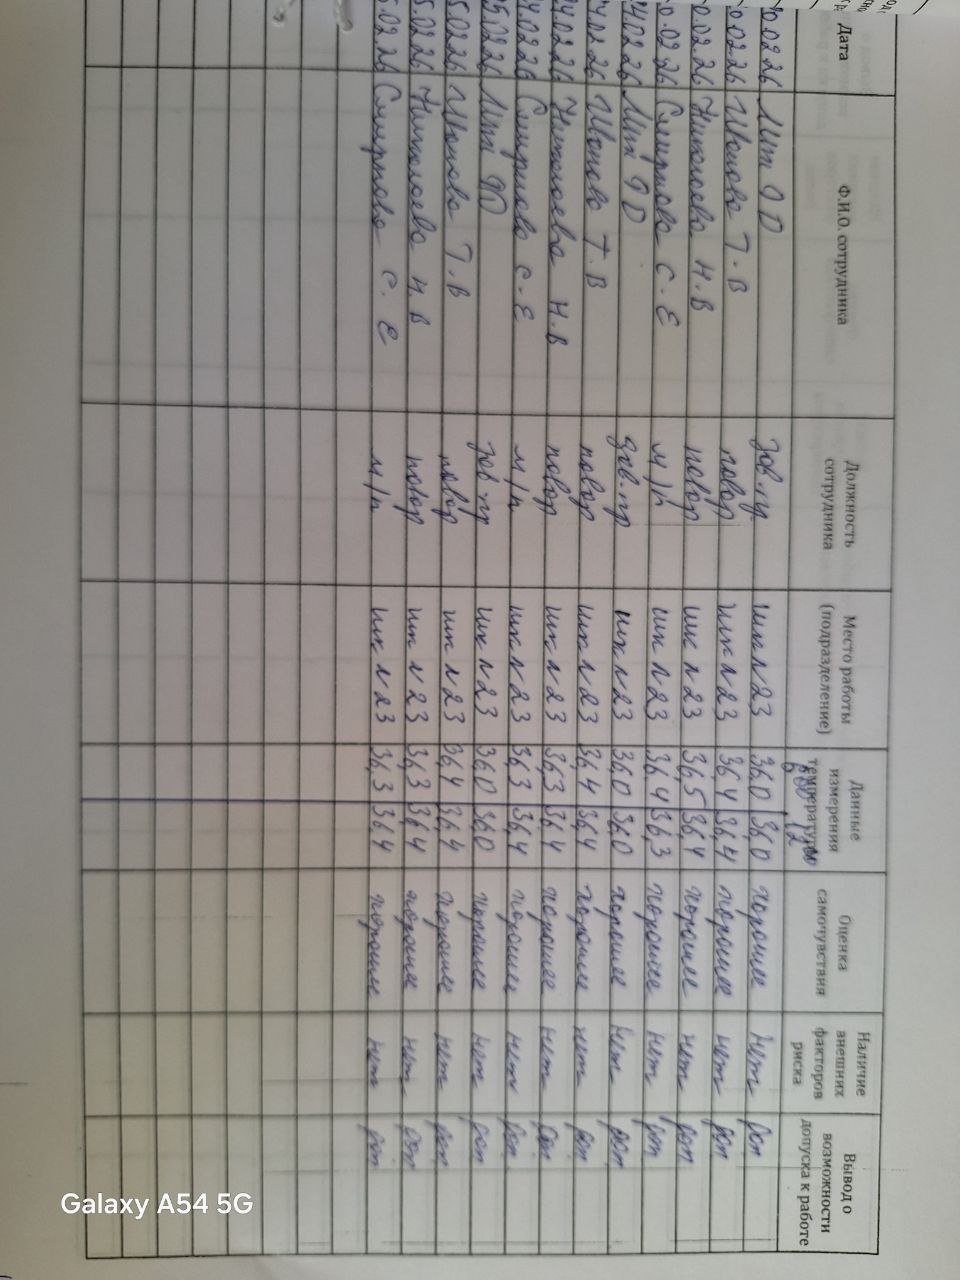 Дата Ф.И.О. сотрудника Должность сотрудника Место работы (подразделение) Данные измерения температуры Оценка самочувствия Наличие внешних факторов риска Вывод о возможности допуска к работе
0.02.26 шк N23 36,0 36,0 хорошее нет доп
0.02.26 Т.В повар шк N23 36,4 36,4 хорошее нет доп
0.02.26 Николаева Н.В повар шк N23 36,5 36,4 хорошее нет доп
0.02.26 Смирнова С.Е м/р шк N23 36,4 36,3 хорошее нет доп
4.02.26 зав.пр шк N23 36,0 36,0 хорошее нет доп
4.02.26 Т.В повар шк N23 36,4 36,4 хорошее нет доп
4.02.26 Николаева Н.В повар шк N23 36,3 36,4 хорошее нет доп
4.02.26 Смирнова С.Е м/р шк N23 36,3 36,4 хорошее нет доп
5.02.26 зав пр шк N23 36,0 36,0 хорошее нет доп
5.02.26 Т.В повар шк N23 36,4 36,4 хорошее нет доп
5.02.26 Николаева Н.В повар шк N23 36,3 36,4 хорошее нет доп
5.02.26 Смирнова С.Е м/р шк N23 36,3 36,4 хорошее нет доп
Galaxy A54 5G